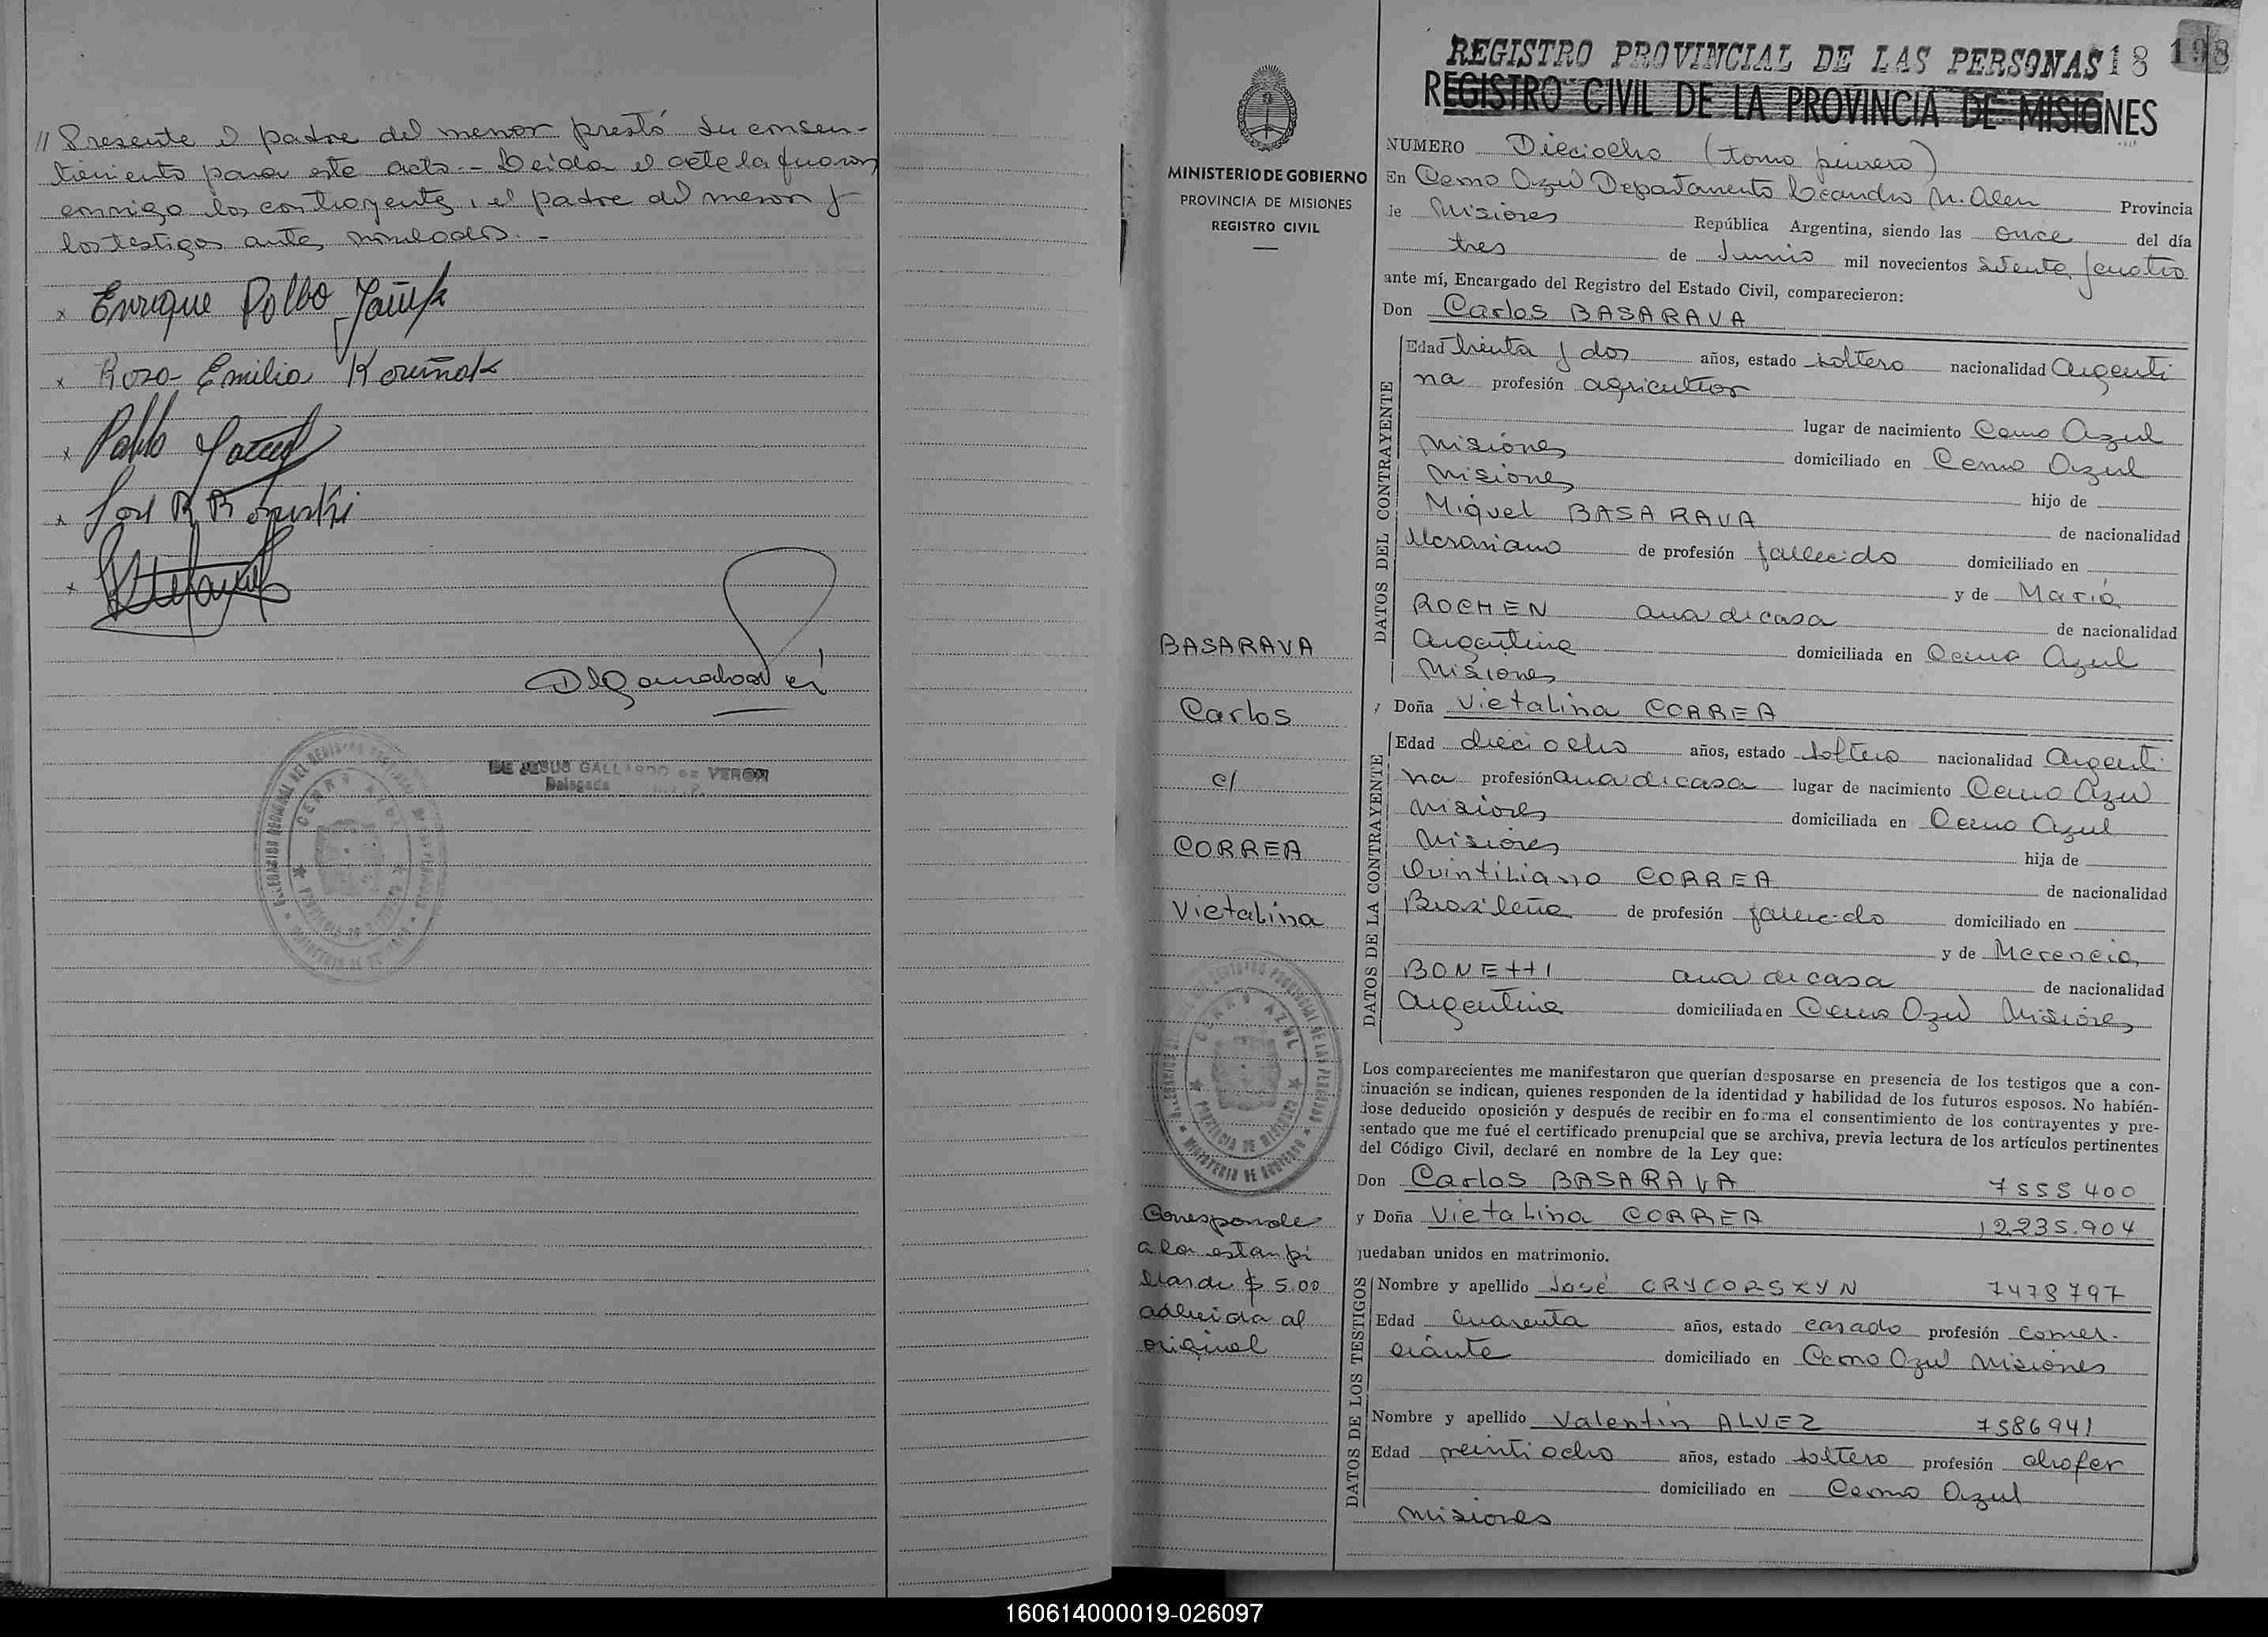 // Presente el padre del menor prestó su consen-
timiento para este acto.- Leida el acta la firman
conmigo los contrayentes, el padre del menor y
los testigos antes nombrados.-
x Enrique Pablo
x Rosa Emilia
x Pablo
x José R.
x
DE JESUS GALLARDO DE VERON
Delegada
CERRO AZUL
MINISTERIO DE GOBIERNO
PROVINCIA DE MISIONES
REGISTRO CIVIL
BASARAVA
Carlos
c/
CORREA
Vietalina
CERRO AZUL
PROVINCIA DE MISIONES
MINISTERIO DE GOBIERNO
Corresponde
a la estampi
lla de $ 5.00
adherida al
original
REGISTRO PROVINCIAL DE LAS PERSONAS 18 198
REGISTRO CIVIL DE LA PROVINCIA DE MISIONES
NUMERO Dieciocho (tomo primero)
En Cerro Azul Departamento Leandro N. Alem Provincia
de Misiones República Argentina, siendo las once del día
tres de Junio mil novecientos setenta y cuatro
ante mí, Encargado del Registro del Estado Civil, comparecieron:
Don Carlos BASARAVA
DATOS DEL CONTRAYENTE
Edad treinta y dos años, estado soltero nacionalidad Argenti
na profesión agricultor
lugar de nacimiento Cerro Azul
Misiones domiciliado en Cerro Azul
Misiones hijo de
Miguel BASARAVA de nacionalidad
Ucraniano de profesión fallecido domiciliado en
y de María
ROCHEN ama de casa de nacionalidad
Argentina domiciliada en Cerro Azul
Misiones
y Doña Vietalina CORREA
DATOS DE LA CONTRAYENTE
Edad dieciocho años, estado soltera nacionalidad Argenti
na profesión ama de casa lugar de nacimiento Cerro Azul
Misiones domiciliada en Cerro Azul
Misiones hija de
Quintiliano CORREA de nacionalidad
Brasileña de profesión fallecido domiciliado en
y de Merencia
BONETTI ama de casa de nacionalidad
Argentina domiciliada en Cerro Azul Misiones
Los comparecientes me manifestaron que querían desposarse en presencia de los testigos que a con-
tinuación se indican, quienes responden de la identidad y habilidad de los futuros esposos. No habién-
dose deducido oposición y después de recibir en forma el consentimiento de los contrayentes y pre-
sentado que me fué el certificado prenupcial que se archiva, previa lectura de los artículos pertinentes
del Código Civil, declaré en nombre de la Ley que:
Don Carlos BASARAVA 7555400
y Doña Vietalina CORREA 12235.904
quedaban unidos en matrimonio.
DATOS DE LOS TESTIGOS
Nombre y apellido José CRYCORSZYN 7478797
Edad cuarenta años, estado casado profesión comer-
ciante domiciliado en Cerro Azul Misiones
Nombre y apellido Valentin ALVEZ 7586941
Edad veintiocho años, estado soltero profesión chofer
domiciliado en Cerro Azul
Misiones
160614000019-026097